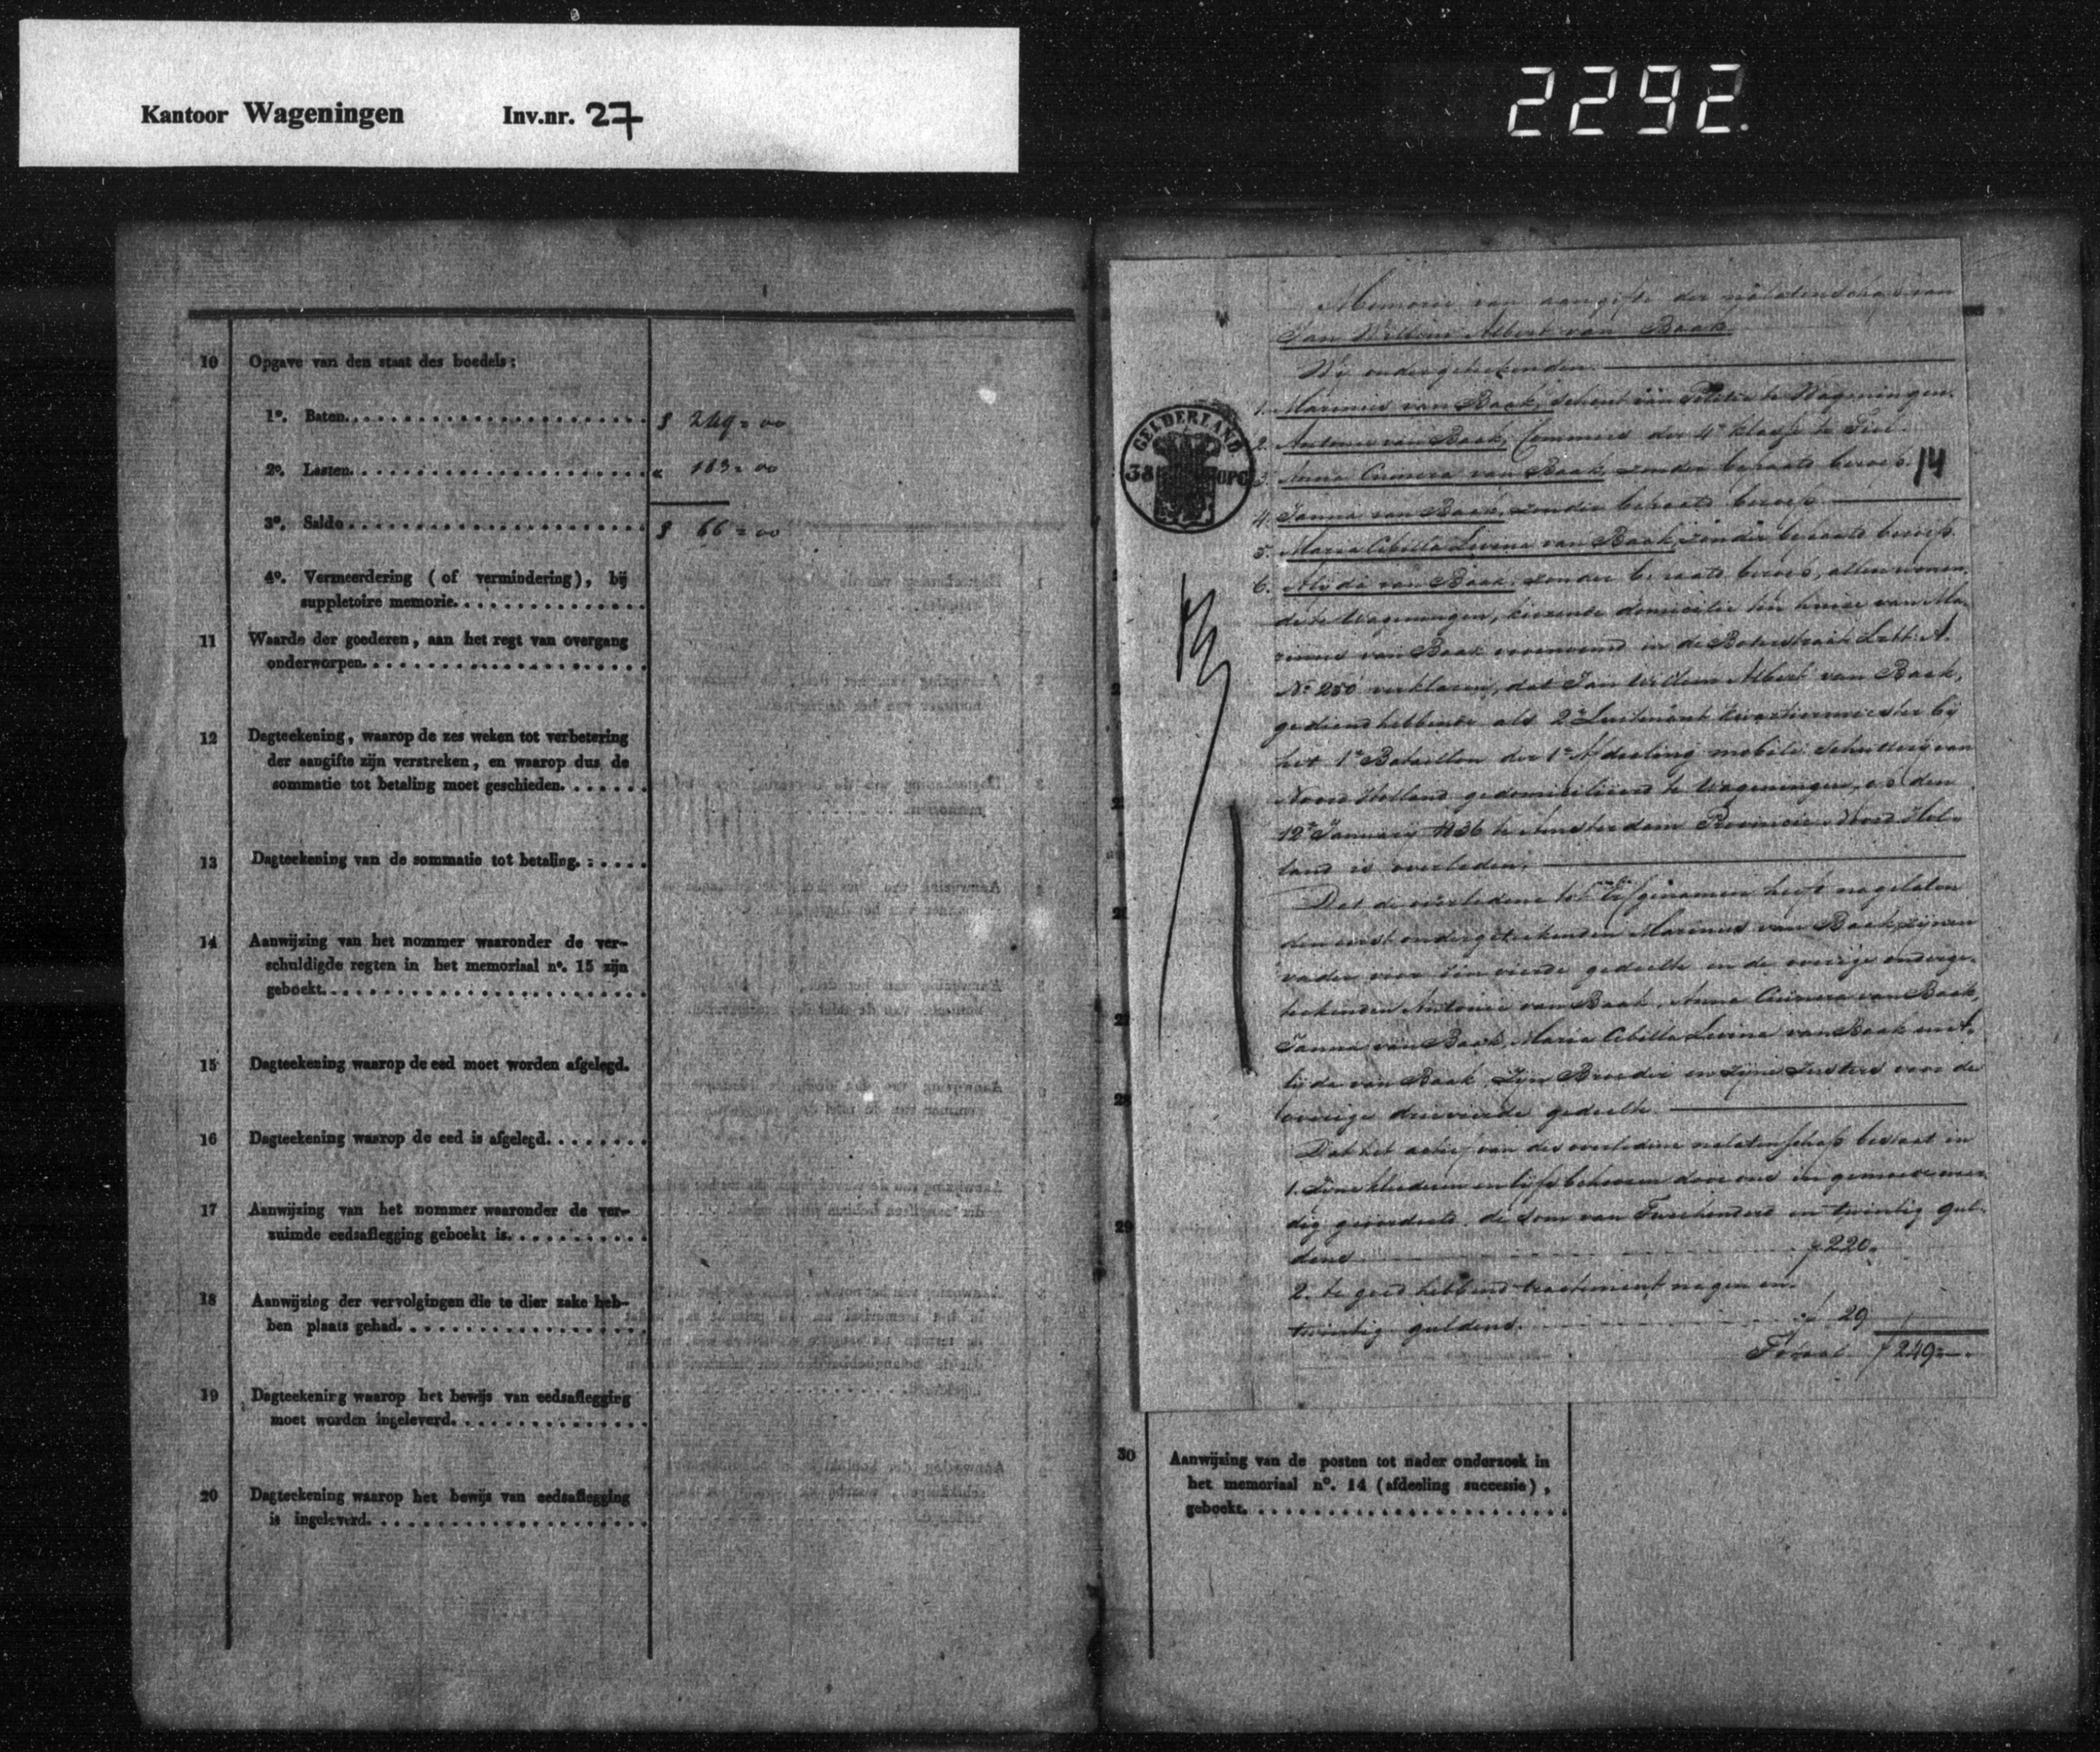 Kantoor Wageningen Inv.nr. 27
2292.
10 Opgave van den staat des boedels:
1°. Baten. f 249 = 00
2°. Lasten. « 183 = 00
3°. Saldo f 66 = 00
4°. Vermeerdering (of vermindering), bij
suppletoire memorie.
11 Waarde der goederen, aan het regt van overgang
onderworpen.
12 Dagteekening, waarop de zes weken tot verbetering
der aangifte zijn verstreken, en waarop dus de
sommatie tot betaling moet geschieden.
13 Dagteekening van de sommatie tot betaling.
14 Aanwijzing van het nommer waaronder de ver-
schuldigde regten in het memoriaal n°. 15 zijn
geboekt.
15 Dagteekening waarop de eed moet worden afgelegd.
16 Dagteekening waarop de eed is afgelegd.
17 Aanwijzing van het nommer waaronder de ver-
zuimde eedsaflegging geboekt is.
18 Aanwijzing der vervolgingen die te dier zake heb-
ben plaats gehad.
19 Dagteekening waarop het bewijs van eedsaflegging
moet worden ingeleverd.
20 Dagteekening waarop het bewijs van eedsaflegging
is ingeleverd.
Memorie van aangifte der nalatenschap van
Jan Willem Albert van Baak
Wij ondergeteekenden
GELDERLAND
38
1. Marinus van Baak, Schout van Politie te Wageningen.
2. Antonie van Baak, Commies der 4e klasse te Tiel.
3. Anna Cunera van Baak, zonder bepaald beroep. 14
4. Janna van Baak, zonder bepaald beroep
5. Maria Cibilla Levina van Baak, zonder bepaald beroep
6. Alijda van Baak, zonder bepaald beroep, allen wonen-
de te Wageningen, kiezende domicilie ten huize van Ma-
rinus van Baak voornoemd in de Boterstraat Lett: A.
N° 250 verklaren, dat Jan Willem Albert van Baak,
gediend hebbende als 2e Luitenant kwartiermeester bij
het 1e Bataillon der 1e Afdeeling mobiele Schutterij van
Noord Holland gedomicilieerd te Wageningen, op den
12e Januarij 1836 te Amsterdam Provincie Noord Hol-
land is overleden,
Dat de overledene tot Erfgenamen heeft nagelaten
den eerst ondergeteekenden Marinus van Baak, zijnen
vader voor een vierde gedeelte en de overige onderge-
teekenden Antonie van Baak, Anna Cunera van Baak,
Janna van Baak, Maria Cibilla Levina van Baak en A-
lijda van Baak, Zijn Broeder en Zijne Zusters voor de
overige drie vierde gedeelte
Dat het actief van des overledene nalatenschap bestaat in
1. Zijne kleederen en lijfsbehooren door ons in gemoede
gewaardeerd de som van Tweehonderd en twintig Gul-
dens f 220.
2. te goed hebbend tractement negen en
twintig guldens. f 29
Totaal f 249
30 Aanwijzing van de posten tot nader onderzoek in
het memoriaal n°. 14 (afdeeling successie),
geboekt.